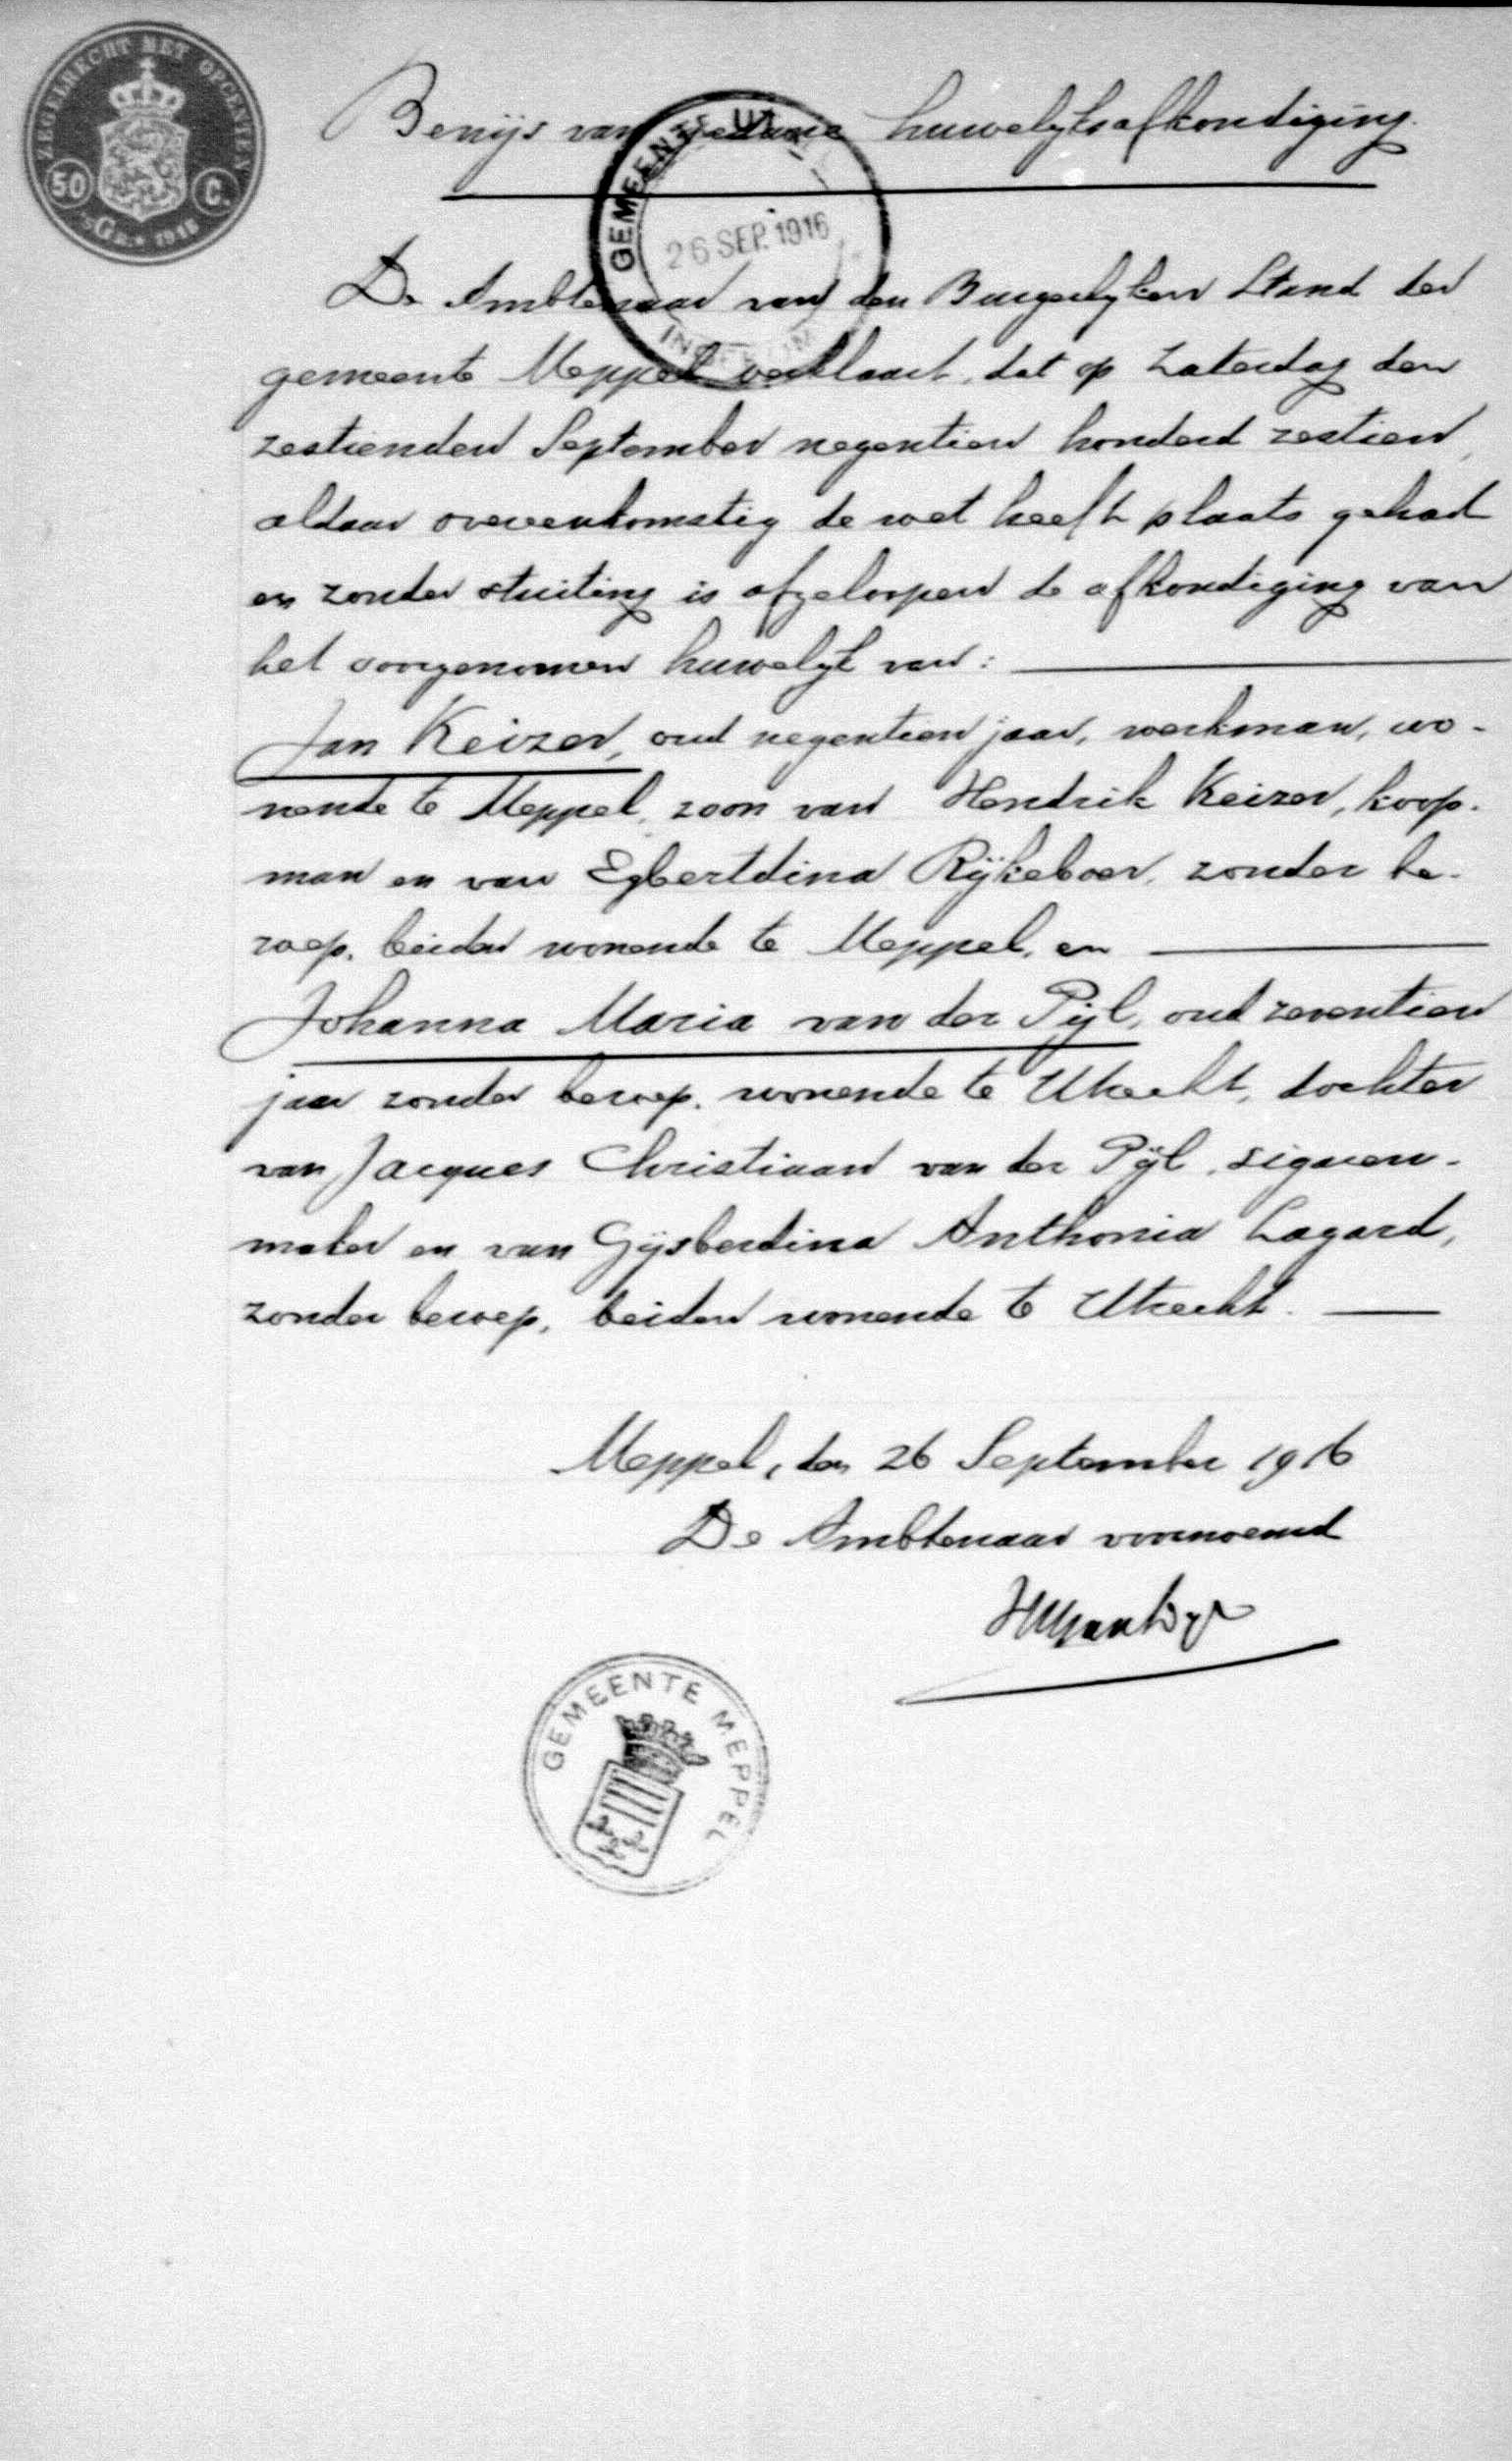 ZEGELRECHT MET OPCENTEN
50 C.
Bewijs van gedane huwelijksafkondiging.
GEMEENTE UT
26 SEP. 1916
De Ambtenaar van den Burgerlijken Stand der
gemeente Meppel verklaart, dat op Zaterdag den
zestienden September negentien honderd zestien,
aldaar overeenkomstig de wet heeft plaats gehad
en zonder stuiting is afgeloopen de afkondiging van
het voorgenomen huwelijk van:
Jan Keizer, oud negentien jaar, werkman, wo-
nende te Meppel, zoon van Hendrik Keizer, koop-
man en van Egbertdina Rijkeboer, zonder be-
roep, beiden wonende te Meppel, en
Johanna Maria van der Pijl, oud zeventien
jaar zonder beroep, wonende te Utrecht, dochter
van Jacques Christiaan van der Pijl, sigaren-
maker en van Gijsberdina Anthonia Lagard,
zonder beroep, beiden wonende te Utrecht.
Meppel, den 26 September 1916
De Ambtenaar voornoemd
GEMEENTE MEPPEL